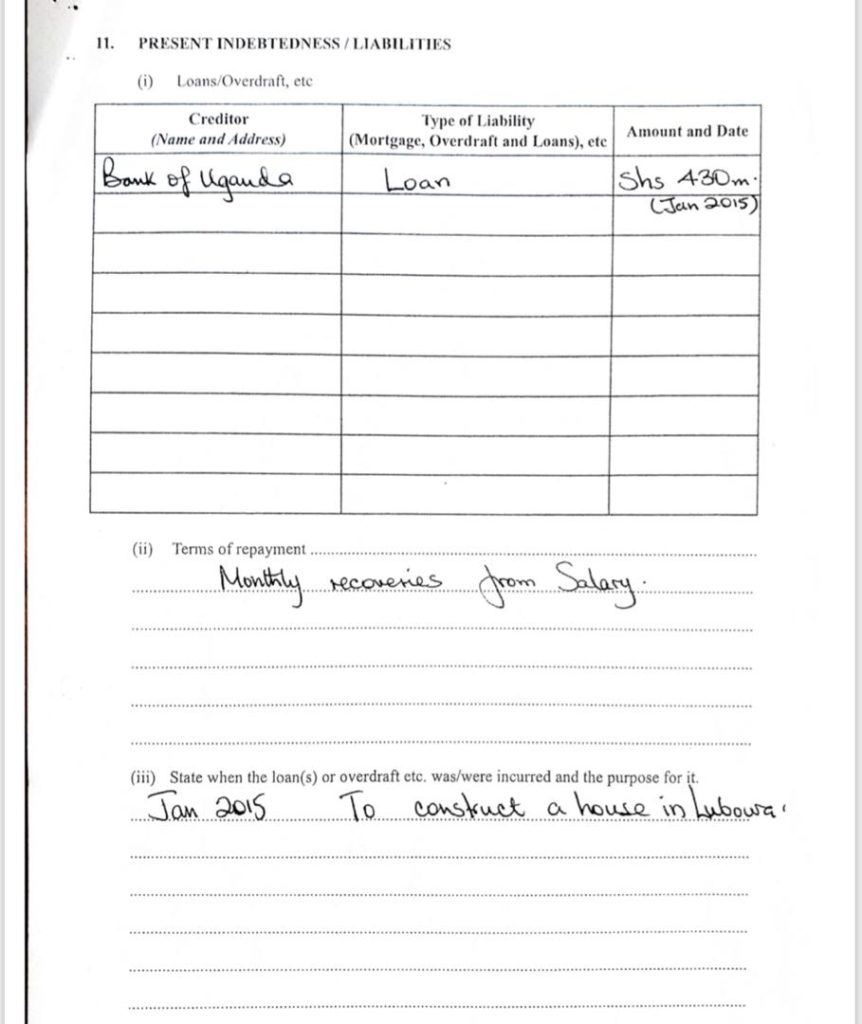 11. PRESENT INDEBTEDNESS / LIABILITIES
(i) Loans/Overdraft, etc
Creditor
(Name and Address)
Type of Liability
(Mortgage, Overdraft and Loans), etc
Amount and Date
Bank of Uganda
Loan
Shs 430m.
(Jan 2015)
(ii) Terms of repayment
Monthly recoveries from Salary.
(iii) State when the loan(s) or overdraft etc. was/were incurred and the purpose for it.
Jan 2015 To construct a house in Lubowa.